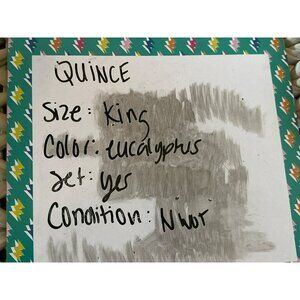 QUINCE
Size: King
Color: eucalyptus
Set: yes
Condition: Nwot